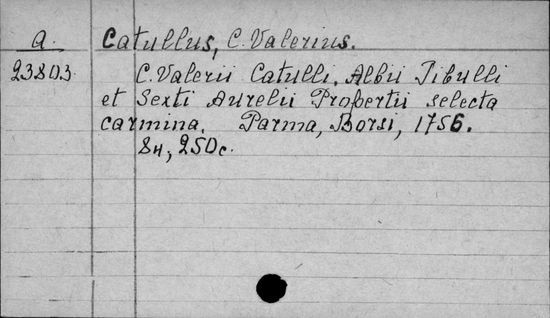 a. Catullus, C. Valerius.
23803 C. Valerii Catulli, Albii Tibulli
et Sexti Aurelii Propertii selecta
carmina. Parma, Borsi, 1756.
84, 250c.